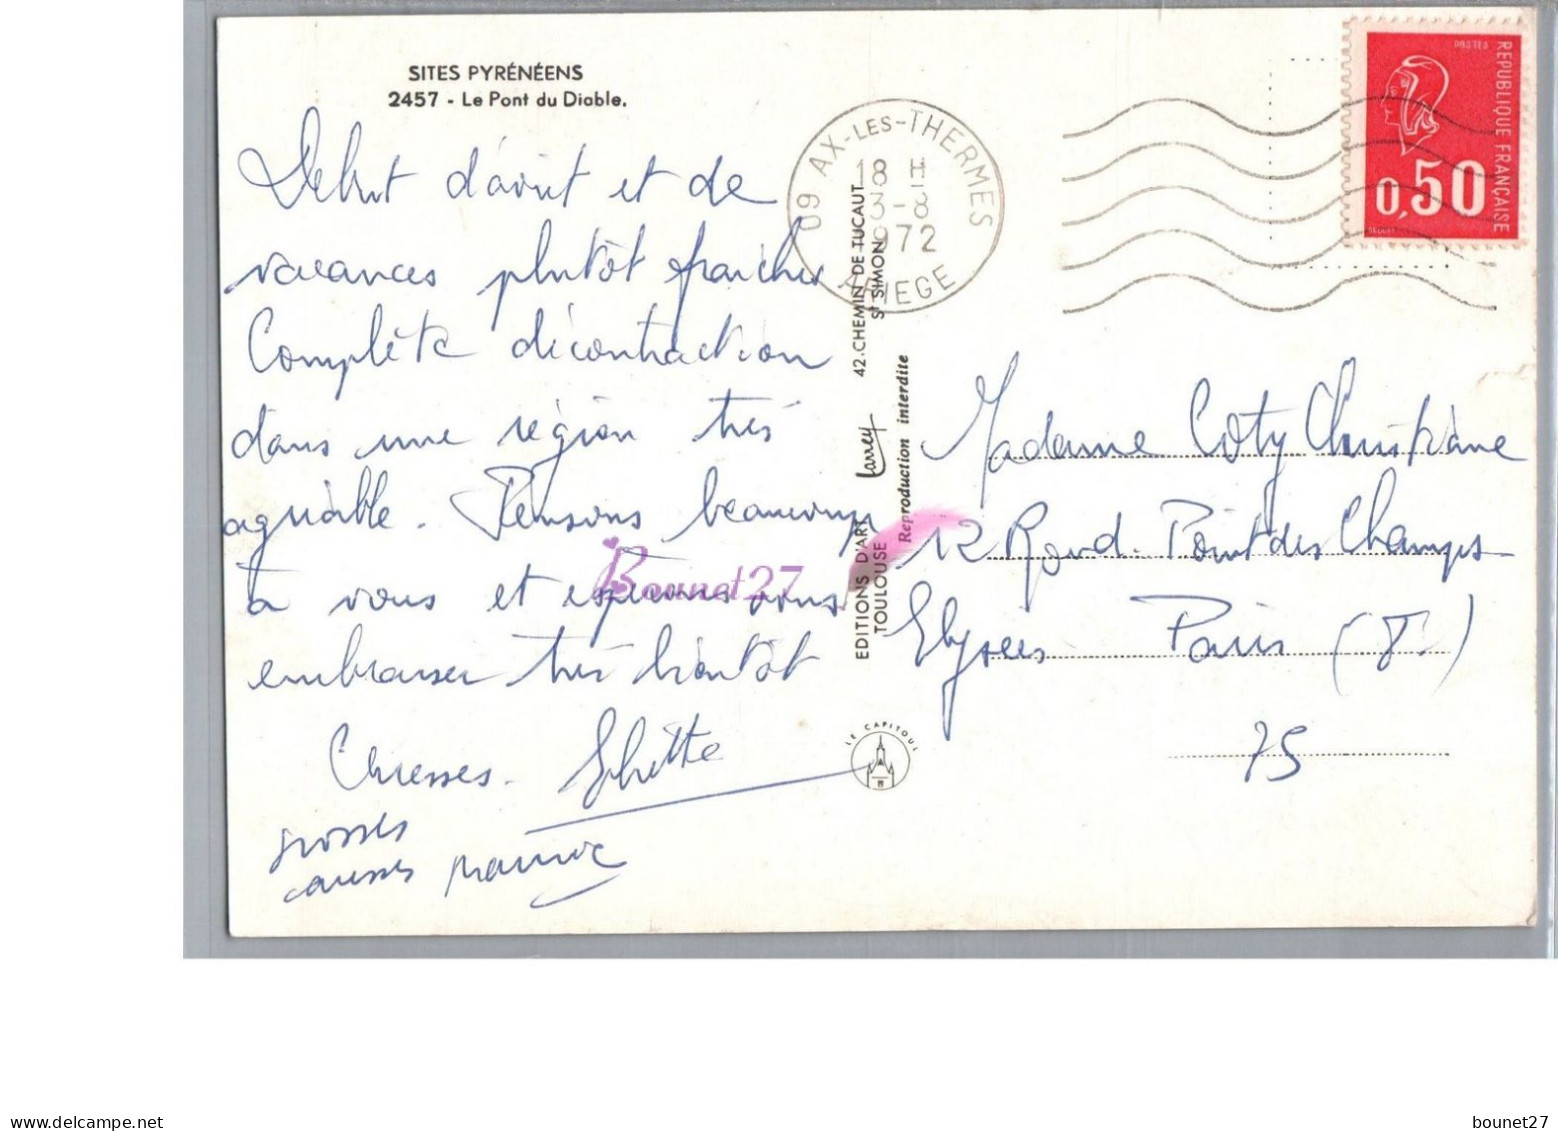 SITES PYRÉNÉENS
2457 - Le Pont du Diable.
Début d'août et de
vacances plutôt fraîches
Complète décontraction
dans une région très
agréable. Pensons beaucoup
à vous et espérons vous
embrasser très bientôt
grosses
Maurice
09 AX-LES-THERMES
18 H
3-8
1972
ARIEGE
REPUBLIQUE FRANÇAISE
POSTES
0,50
EDITIONS D'ART Larrey 42.CHEMIN DE TUCAUT
TOULOUSE St SIMON
Reproduction interdite
LE CAPITOUL
Madame Coty Christiane
12 Rond-Point des Champs
Elysées Paris (8e)
75
Bounet27
delcampe.net
bounet27